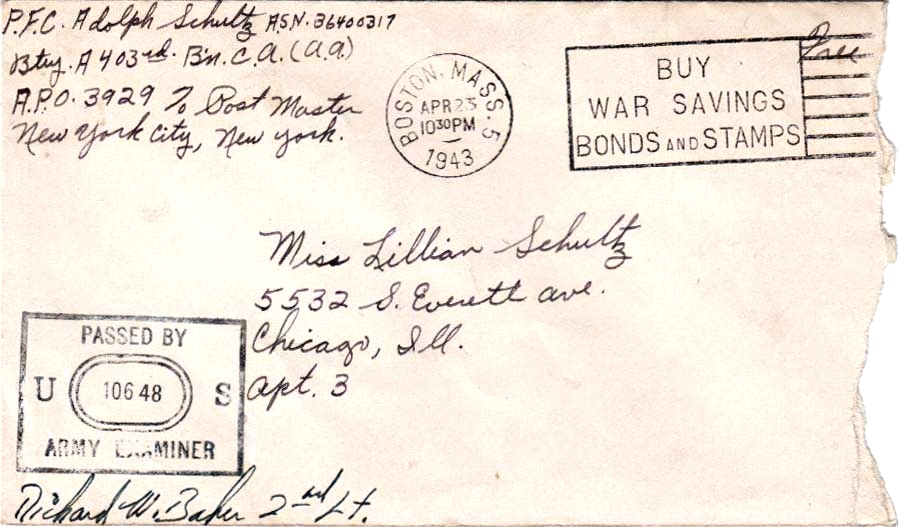 P.F.C. Adolph Schultz A.S.N. 36400317
Btry. A 403rd. Bn. C.A. (A.A.)
A.P.O. 3929 % Post Master
New York City, New York.
BOSTON, MASS. 5
APR 23
1030 PM
1943
Free
BUY
WAR SAVINGS
BONDS AND STAMPS
Miss Lillian Schultz
5532 S. Everett ave.
Chicago, Ill.
Apt. 3
PASSED BY
U 10648 S
ARMY EXAMINER
Richard W. Baker 2nd Lt.